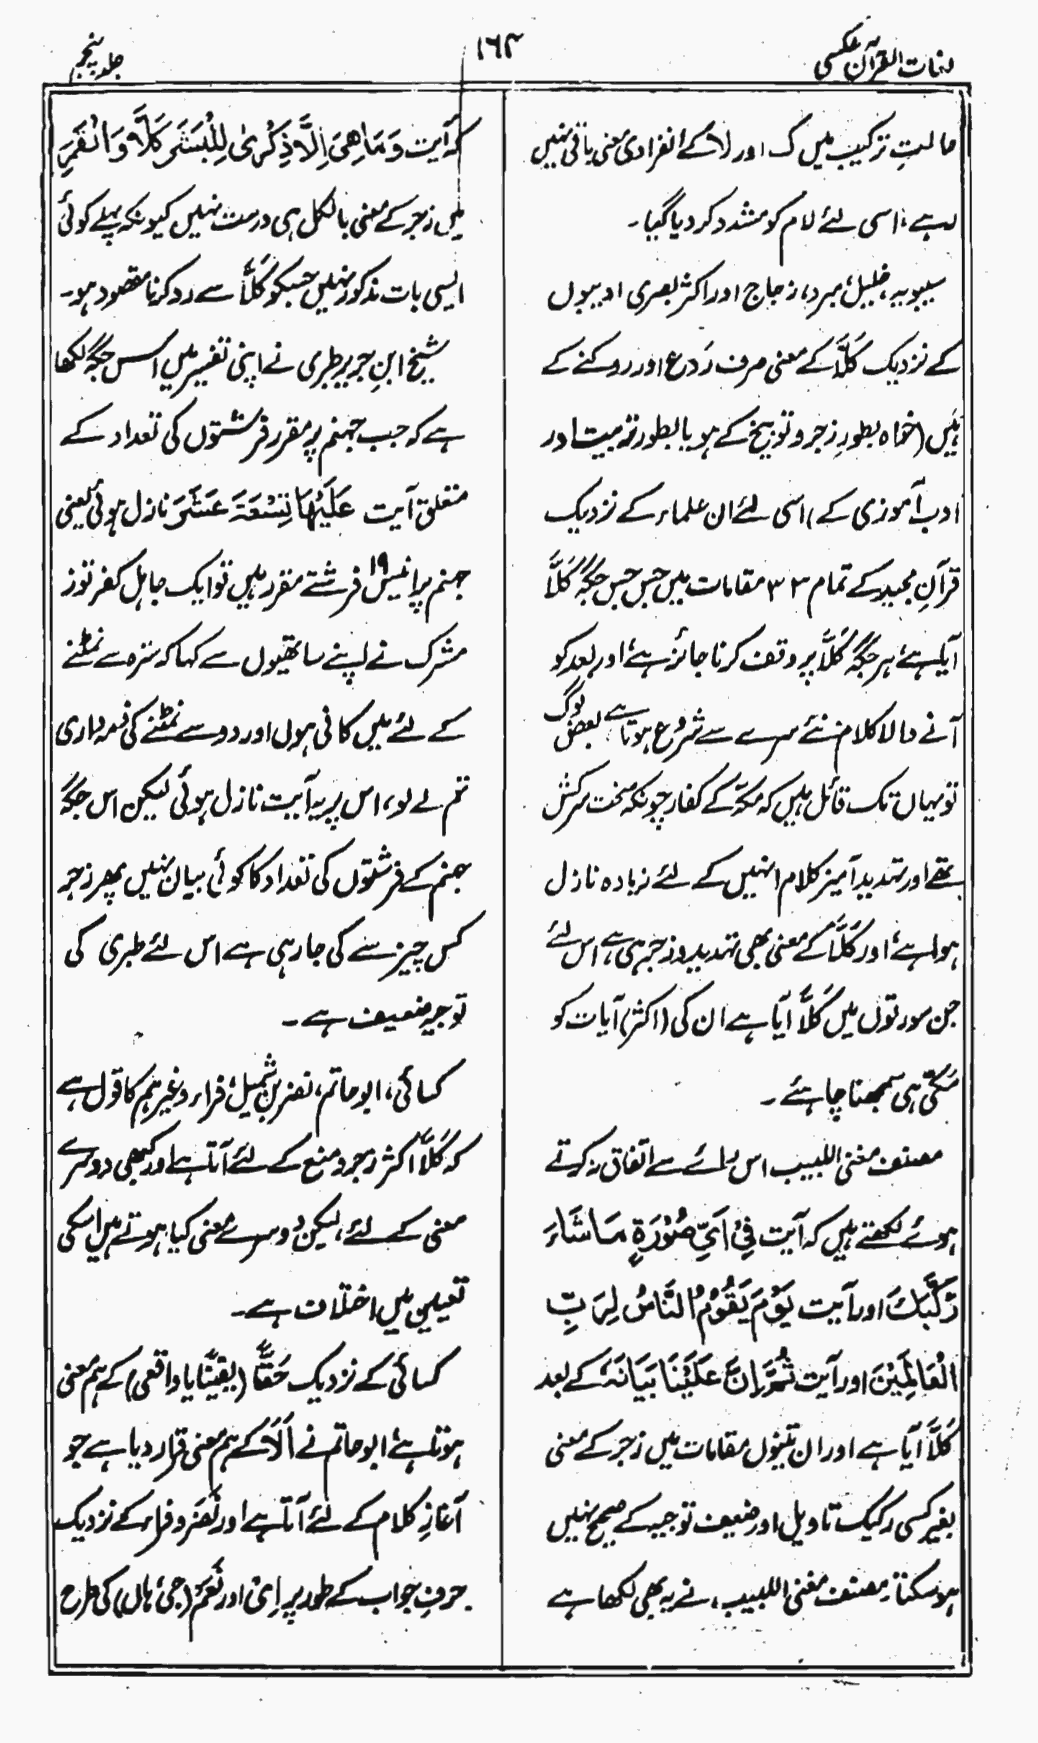 لغات القرآن عکسی
۱۶۴
جلد پنجم
حالتِ ترکیب میں ک اور لا کے انفرادی معنی باقی نہیں
رہے، اسی لئے لام کو مشدد کر دیا گیا۔
سیبویہ، خلیل، مبرد، زجاج اور اکثر بصری ادیبوں
کے نزدیک کَلَّا کے معنی صرف رَدع اور روکنے کے
ہیں (خواہ بطورِ زجر و توبیخ کے ہو یا بطور تربیت اور
ادب آموزی کے) اسی لئے ان علماء کے نزدیک
قرآنِ مجید کے تمام ۳۳ مقامات میں جس جس جگہ کَلَّا
آیا ہے، ہر جگہ کَلَّا پر وقف کرنا جائز ہے، اور بعد کو
آنے والا کلام نئے سرے سے شروع ہوتا ہے، بعض لوگ
تو یہاں تک قائل ہیں کہ مکہ کے کفار چونکہ سخت سرکش
تھے اور تہدید آمیز کلام انہیں کے لئے زیادہ نازل
ہوا ہے، اور کَلَّا کے معنی بھی تہدید و زجر ہی ہے، اس لئے
جن سورتوں میں کَلَّا آیا ہے ان کی (اکثر) آیات کو
مکّی ہی سمجھنا چاہئے۔
مصنف مغنی اللبیب اس رائے سے اتفاق نہ کرتے
ہوئے لکھتے ہیں کہ آیت فِیْ اَیِّ صُوْرَةٍ مَا شَاءَ
رَکَّبَکَ اور آیت یَوْمَ یَقُوْمُ النَّاسُ لِرَبِّ
الْعَالَمِیْنَ اور آیت ثُمَّ اِنَّ عَلَیْنَا بَیَانَهٗ کے بعد
کَلَّا آیا ہے اور ان تینوں مقامات میں زجر کے معنی
بغیر کسی رکیک تاویل اور ضعیف توجیہ کے صحیح نہیں
ہو سکتا، مصنف مغنی اللبیب، نے یہ بھی لکھا ہے
کہ آیت وَمَا هِیَ اِلَّا ذِکْرٰی لِلْبَشَرِ کَلَّا وَ الْقَمَرِ
میں زجر کے معنی بالکل ہی درست نہیں کیونکہ پہلے کوئی
ایسی بات مذکور نہیں جسکو کَلَّا سے رد کرنا مقصود ہو۔
شیخ ابنِ جریر طبری نے اپنی تفسیر میں اس جگہ لکھا
ہے کہ جب جہنم پر مقرر فرشتوں کی تعداد کے
متعلق آیت عَلَیْهَا تِسْعَةَ عَشَرَ نازل ہوئی یعنی
جہنم پر انیس ۱۹ فرشتے مقرر ہیں تو ایک جاہل کفر توز
مشرک نے اپنے ساتھیوں سے کہا کہ سترہ سے نمٹنے
کے لئے میں کافی ہوں اور دو سے نمٹنے کی ذمہ داری
تم لے لو، اس پر یہ آیت نازل ہوئی لیکن اس جگہ
جہنم کے فرشتوں کی تعداد کا کوئی بیان نہیں پھر زجر
کس چیز سے کی جا رہی ہے اس لئے طبری کی
توجیہ ضعیف ہے۔
کسائی، ابو حاتم، نضر بن شمیل، فراء وغیرہم کا قول ہے
کہ کَلَّا اکثر زجر و منع کے لئے آتا ہے اور کبھی دوسرے
معنی کے لئے، لیکن دوسرے معنی کیا ہوتے ہیں اسکی
تعیین میں اختلاف ہے۔
کسائی کے نزدیک حَقًّا (یقینًا یا واقعی) کے ہم معنی
ہوتا ہے، ابو حاتم نے اَلَا کے ہم معنی قرار دیا ہے جو
آغازِ کلام کے لئے آتا ہے اور نَضر و فراء کے نزدیک
حرفِ جواب کے طور پر اِیْ اور نَعَمْ (جی، ہاں) کی طرح